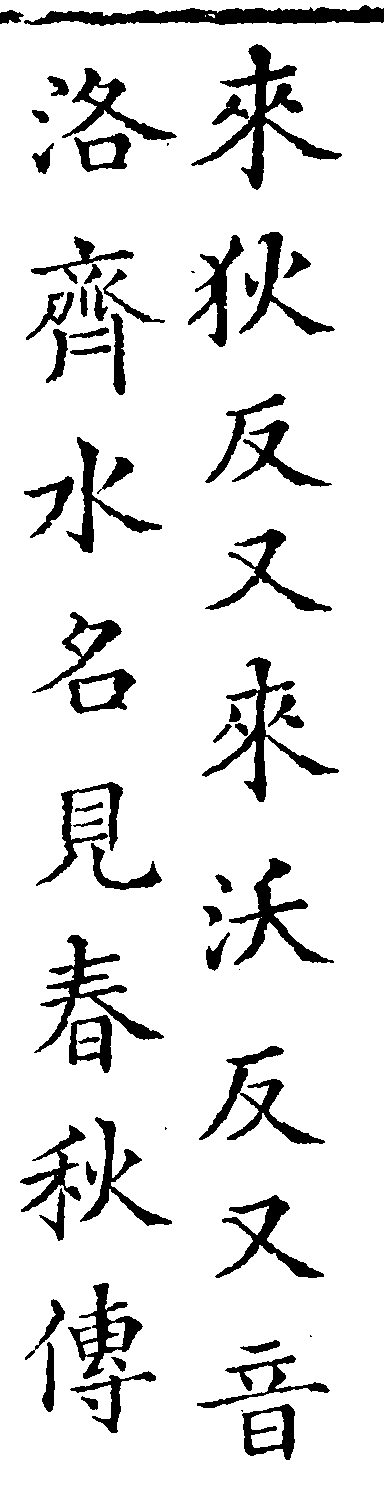 來狄反又來沃反又音
洛齊水名見春秋傳